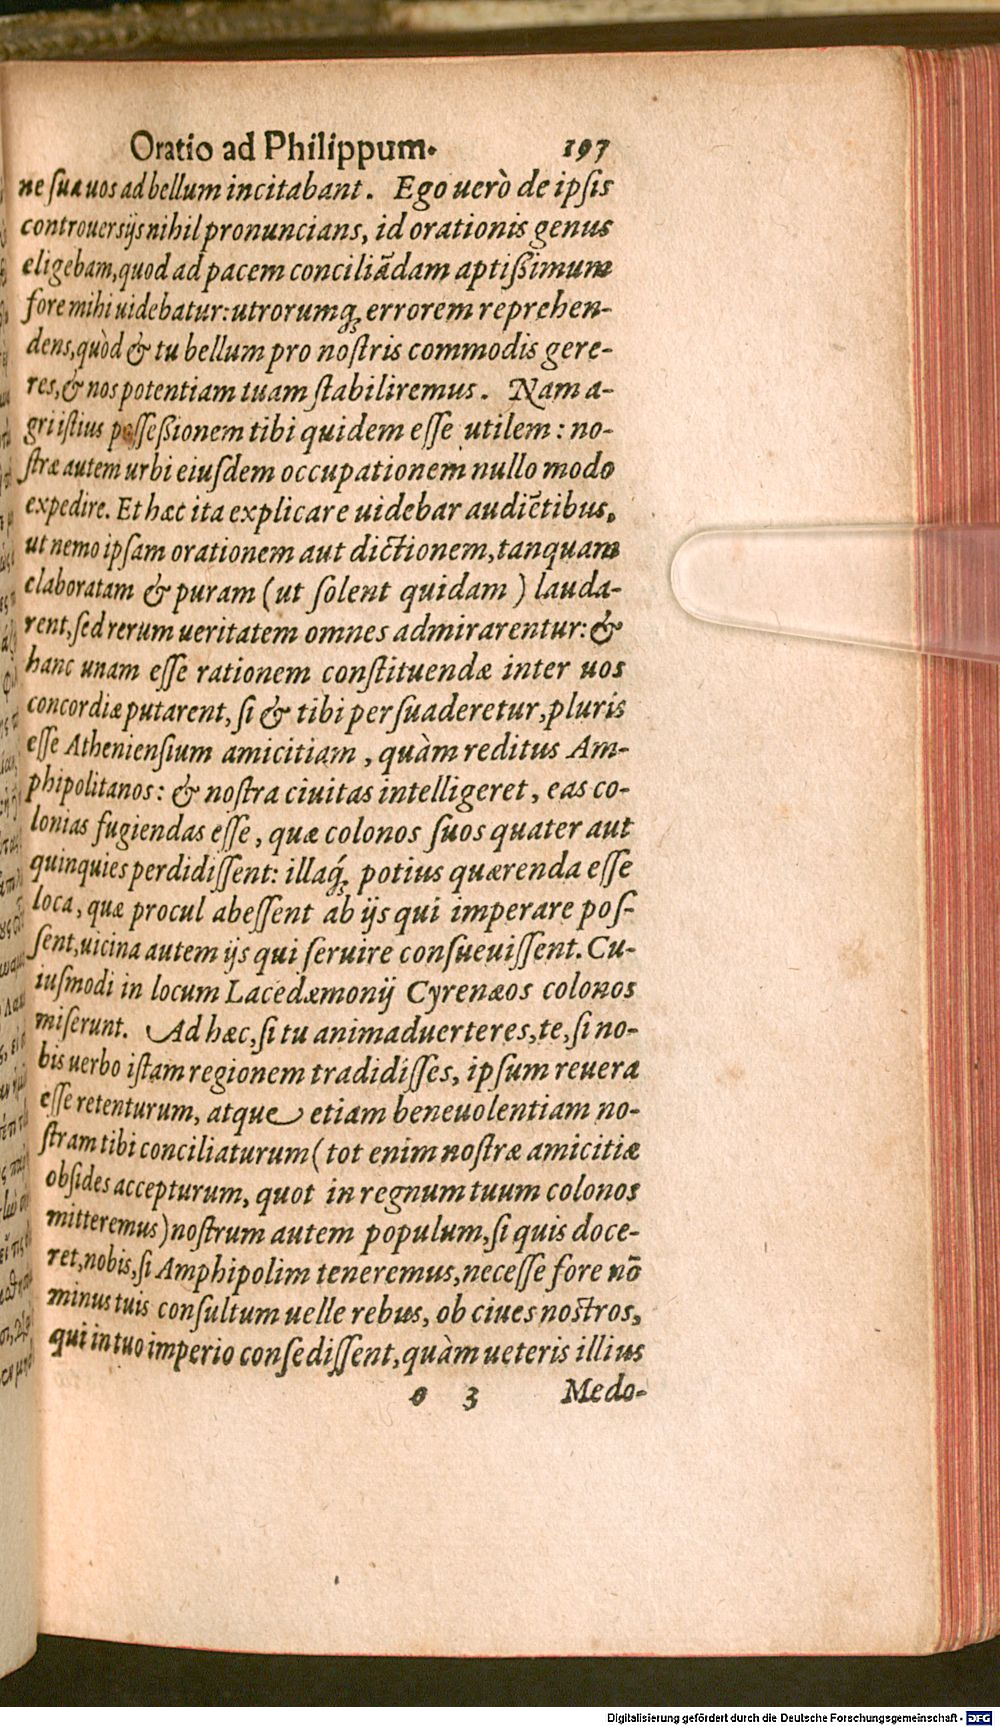 Oratio ad Philippum. 197
ne sua uos ad bellum incitabant. Ego uerò de ipsis
controuersijs nihil pronuncians, id orationis genus
eligebam, quod ad pacem conciliādam aptißimum
fore mihi uidebatur: utrorumq́; errorem reprehen-
dens, quòd & tu bellum pro nostris commodis gere-
res, & nos potentiam tuam stabiliremus. Nam a-
gri istius posseßionem tibi quidem esse utilem: no-
stræ autem urbi eiusdem occupationem nullo modo
expedire. Et hæc ita explicare uidebar audiētibus,
ut nemo ipsam orationem aut dictionem, tanquam
elaboratam & puram (ut solent quidam) lauda-
rent, sed rerum ueritatem omnes admirarentur: &
hanc unam esse rationem constituendæ inter uos
concordiæ putarent, si & tibi persuaderetur, pluris
esse Atheniensium amicitiam, quàm reditus Am-
phipolitanos: & nostra ciuitas intelligeret, eas co-
lonias fugiendas esse, quæ colonos suos quater aut
quinquies perdidissent: illaq́; potius quærenda esse
loca, quæ procul abessent ab ijs qui imperare pos-
sent, uicina autem ijs qui seruire consueuissent. Cu-
iusmodi in locum Lacedæmonij Cyrenæos colonos
miserunt. Ad hæc, si tu animaduerteres, te, si no-
bis uerbo istam regionem tradidisses, ipsum reuera
esse retenturum, atque etiam beneuolentiam no-
stram tibi conciliaturum (tot enim nostræ amicitiæ
obsides accepturum, quot in regnum tuum colonos
mitteremus) nostrum autem populum, si quis doce-
ret, nobis, si Amphipolim teneremus, necesse fore nō
minus tuis consultum uelle rebus, ob ciues nostros,
qui in tuo imperio consedissent, quàm ueteris illius
o 3 Medo-
Digitalisierung gefördert durch die Deutsche Forschungsgemeinschaft - DFG